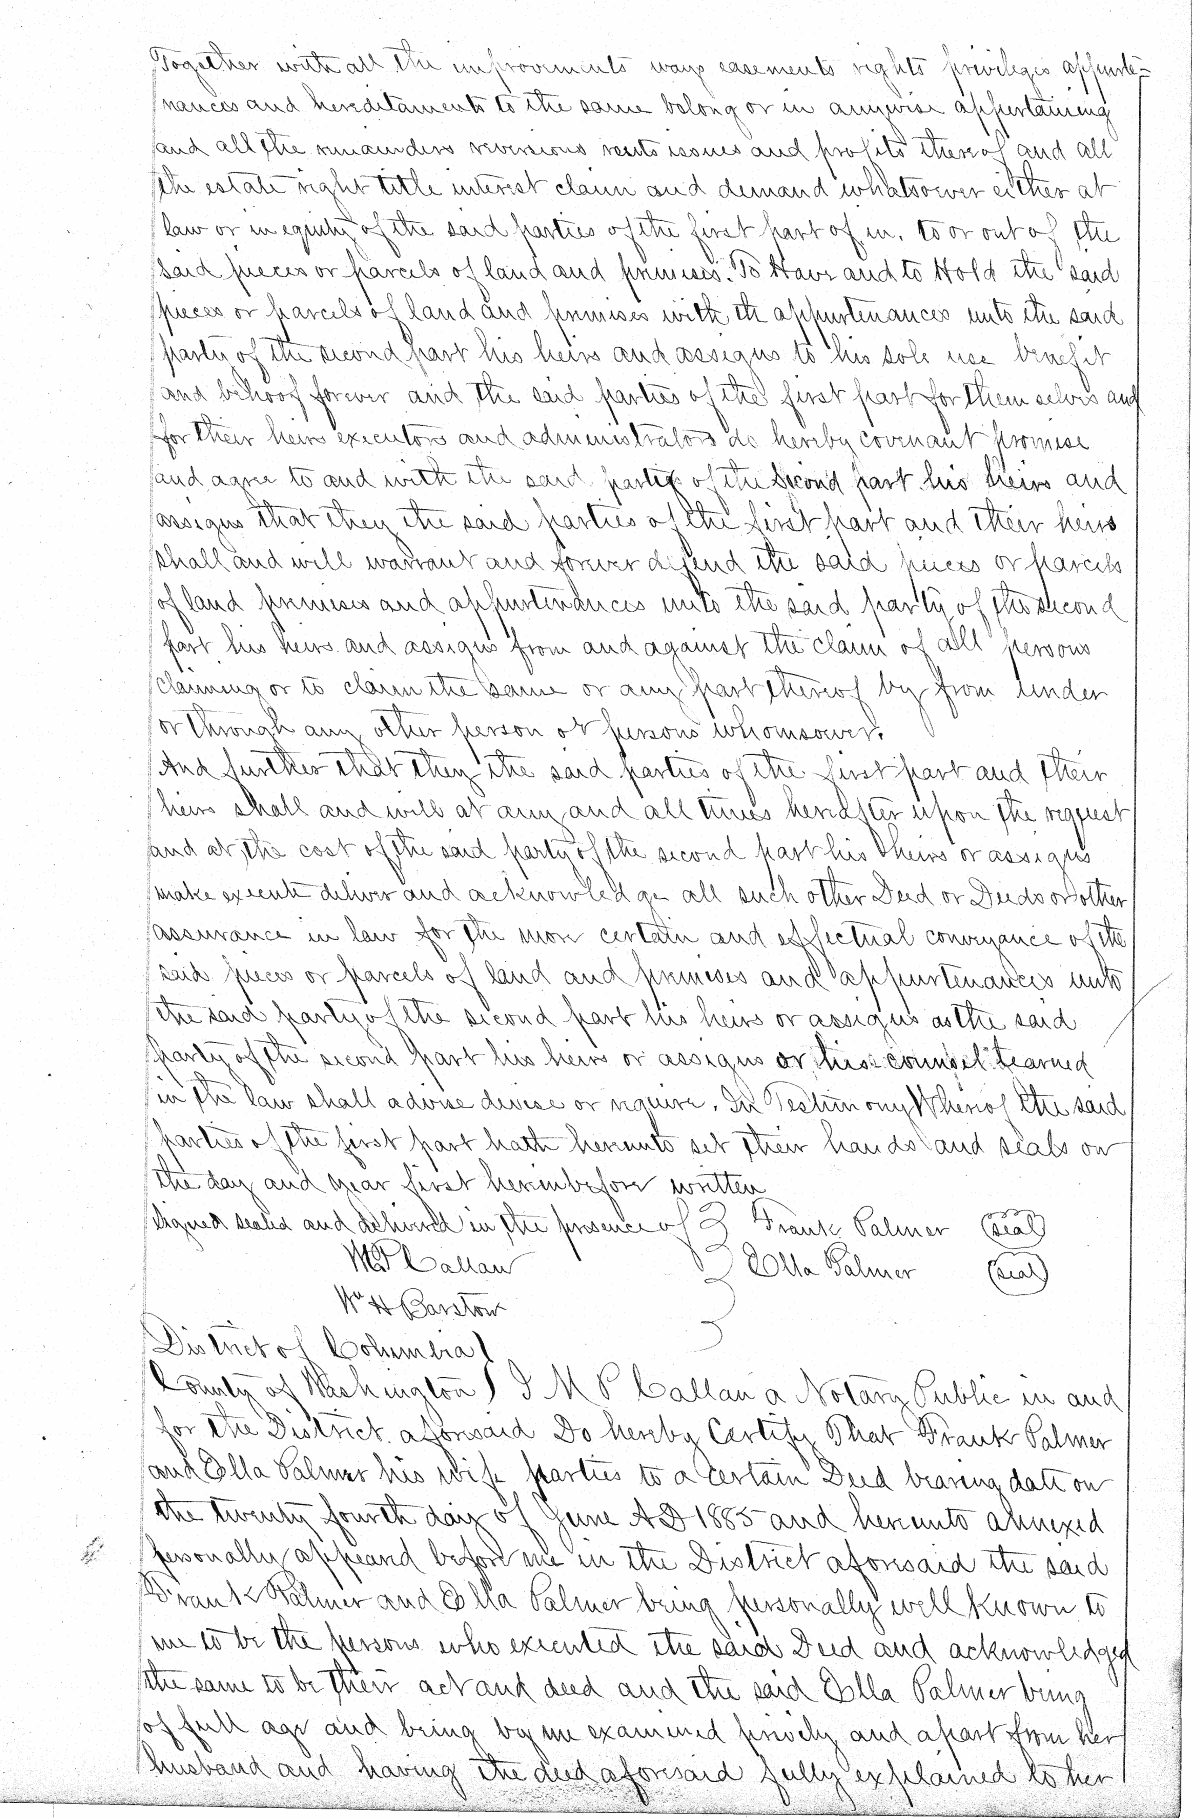 Together with all the improvements ways easements rights privileges appurte=
nances and hereditaments to the same belong or in anywise appertaining
and all the remainders reversions rents issues and profits thereof and all
the estate right title interest claim and demand whatsoever either at
law or in equity of the said parties of the first part of in, to or out of the
said pieces or parcels of land and premises. To Have and to Hold the said
pieces or parcels of land and premises with th appurtenances unto the said
party of the second part his heirs and assigns to his sole use benefit
and behoof forever and the said parties of the first part for them selves and
for their heirs executors and administrators do hereby covenant promise
and agree to and with the said party of the Second part his heirs and
assigns that they the said parties of the first part and their heirs
shall and will warrant and forever defend the said pieces or parcels
of land premises and appurtenances unto the said party of the second
part his heirs and assigns from and against the claim of all persons
claiming or to claim the same or any part thereof by from under
or through any other person or persons whomsoever.
And further that they the said parties of the first part and their
heirs shall and will at any and all times hereafter upon the request
and at the cost of the said party of the second part his heirs or assigns
make execute deliver and acknowledge all such other Deed or Deeds or other
assurance in law for the more certain and effectual conveyance of the
said pieces or parcels of land and premises and appurtenances unto
the said party of the second part his heirs or assigns as the said
party of the second part his heirs or assigns or his counsel learned
in the law shall advise devise or require. In Testimony Whereof the said
parties of the first part hath hereunto set their hands and seals on
the day and year first hereinbefore written
Signed sealed and delivered in the presence of } Frank Palmer (seal)
M P Callan } Ella Palmer (seal)
Wm H Barstow
District of Columbia }
County of Washington } I M P Callan a Notary Public in and
for the District aforesaid Do hereby Certify That Frank Palmer
and Ella Palmer his wife parties to a certain Deed bearing date on
the twenty fourth day of June AD 1885 and hereunto annexed
personally appeared before me in the District aforesaid the said
Frank Palmer and Ella Palmer being personally well known to
me to be the persons who executed the said Deed and acknowledged
the same to be their act and deed and the said Ella Palmer being
of full age and being by me examined privily and apart from her
husband and having the deed aforesaid fully explained to her